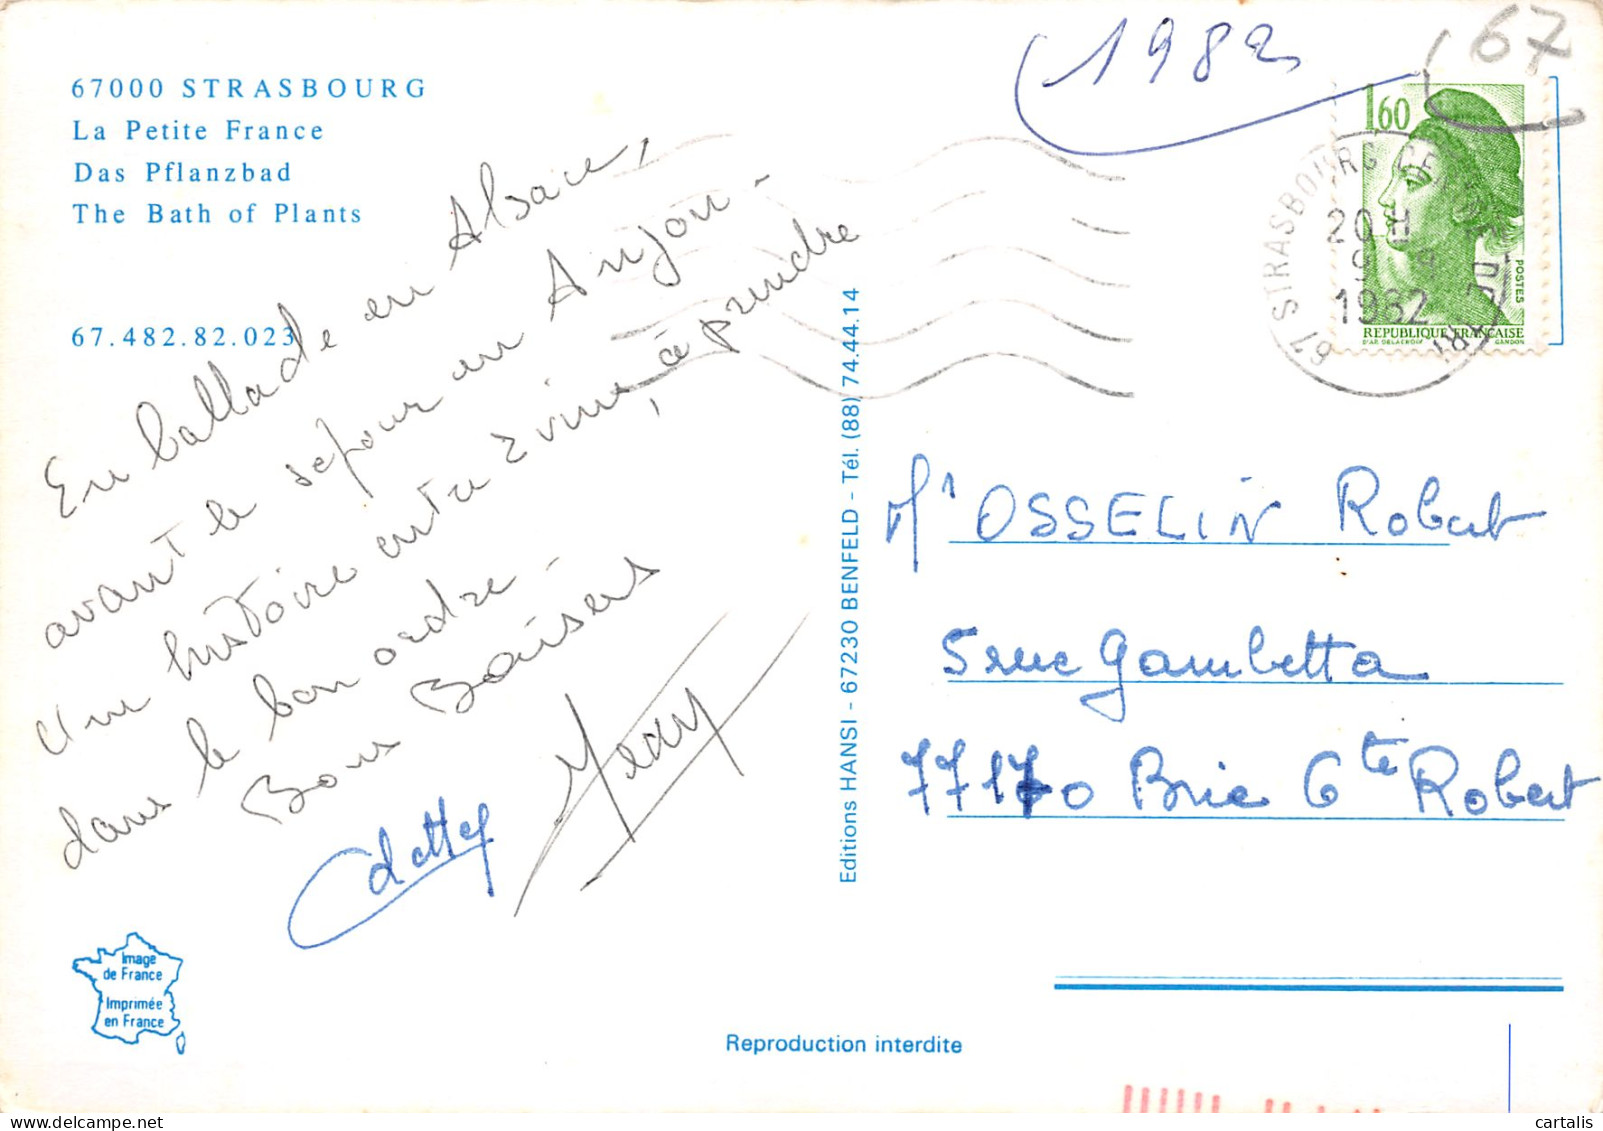 67000 STRASBOURG
La Petite France
Das Pflanzbad
The Bath of Plants
67.482.82.023
En ballade en Alsace,
avant le séjour en Anjou -
Une histoire entre 2 vins, à prendre
dans le bon ordre -
Bons Baisers
Odette
Image
de France
Imprimée
en France
Editions HANSI - 67230 BENFELD - Tél. (88) 74.44.14
Reproduction interdite
1982
67
1,60
POSTES
REPUBLIQUE FRANÇAISE
D'AP. DELACROIX GANDON
67 STRASBOURG
20 H
9 - 9
1982
Mr OSSELIN Robert
5 rue Gambetta
77170 Brie Cte Robert
cartalis